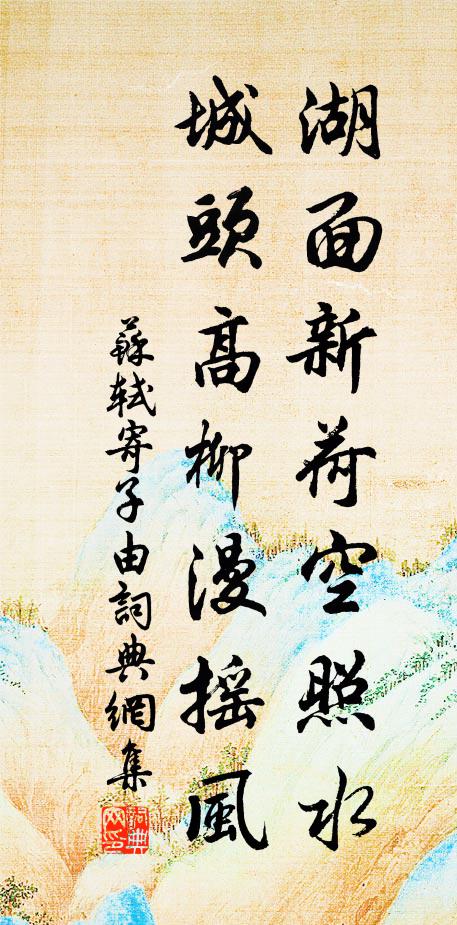 湖面新荷空照水
城頭高柳漫搖風
蘇軾寄子由詞典網集
詞典網印